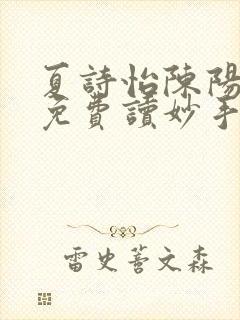 夏詩怡陳陽
免費讀妙手
雷史蒼文森